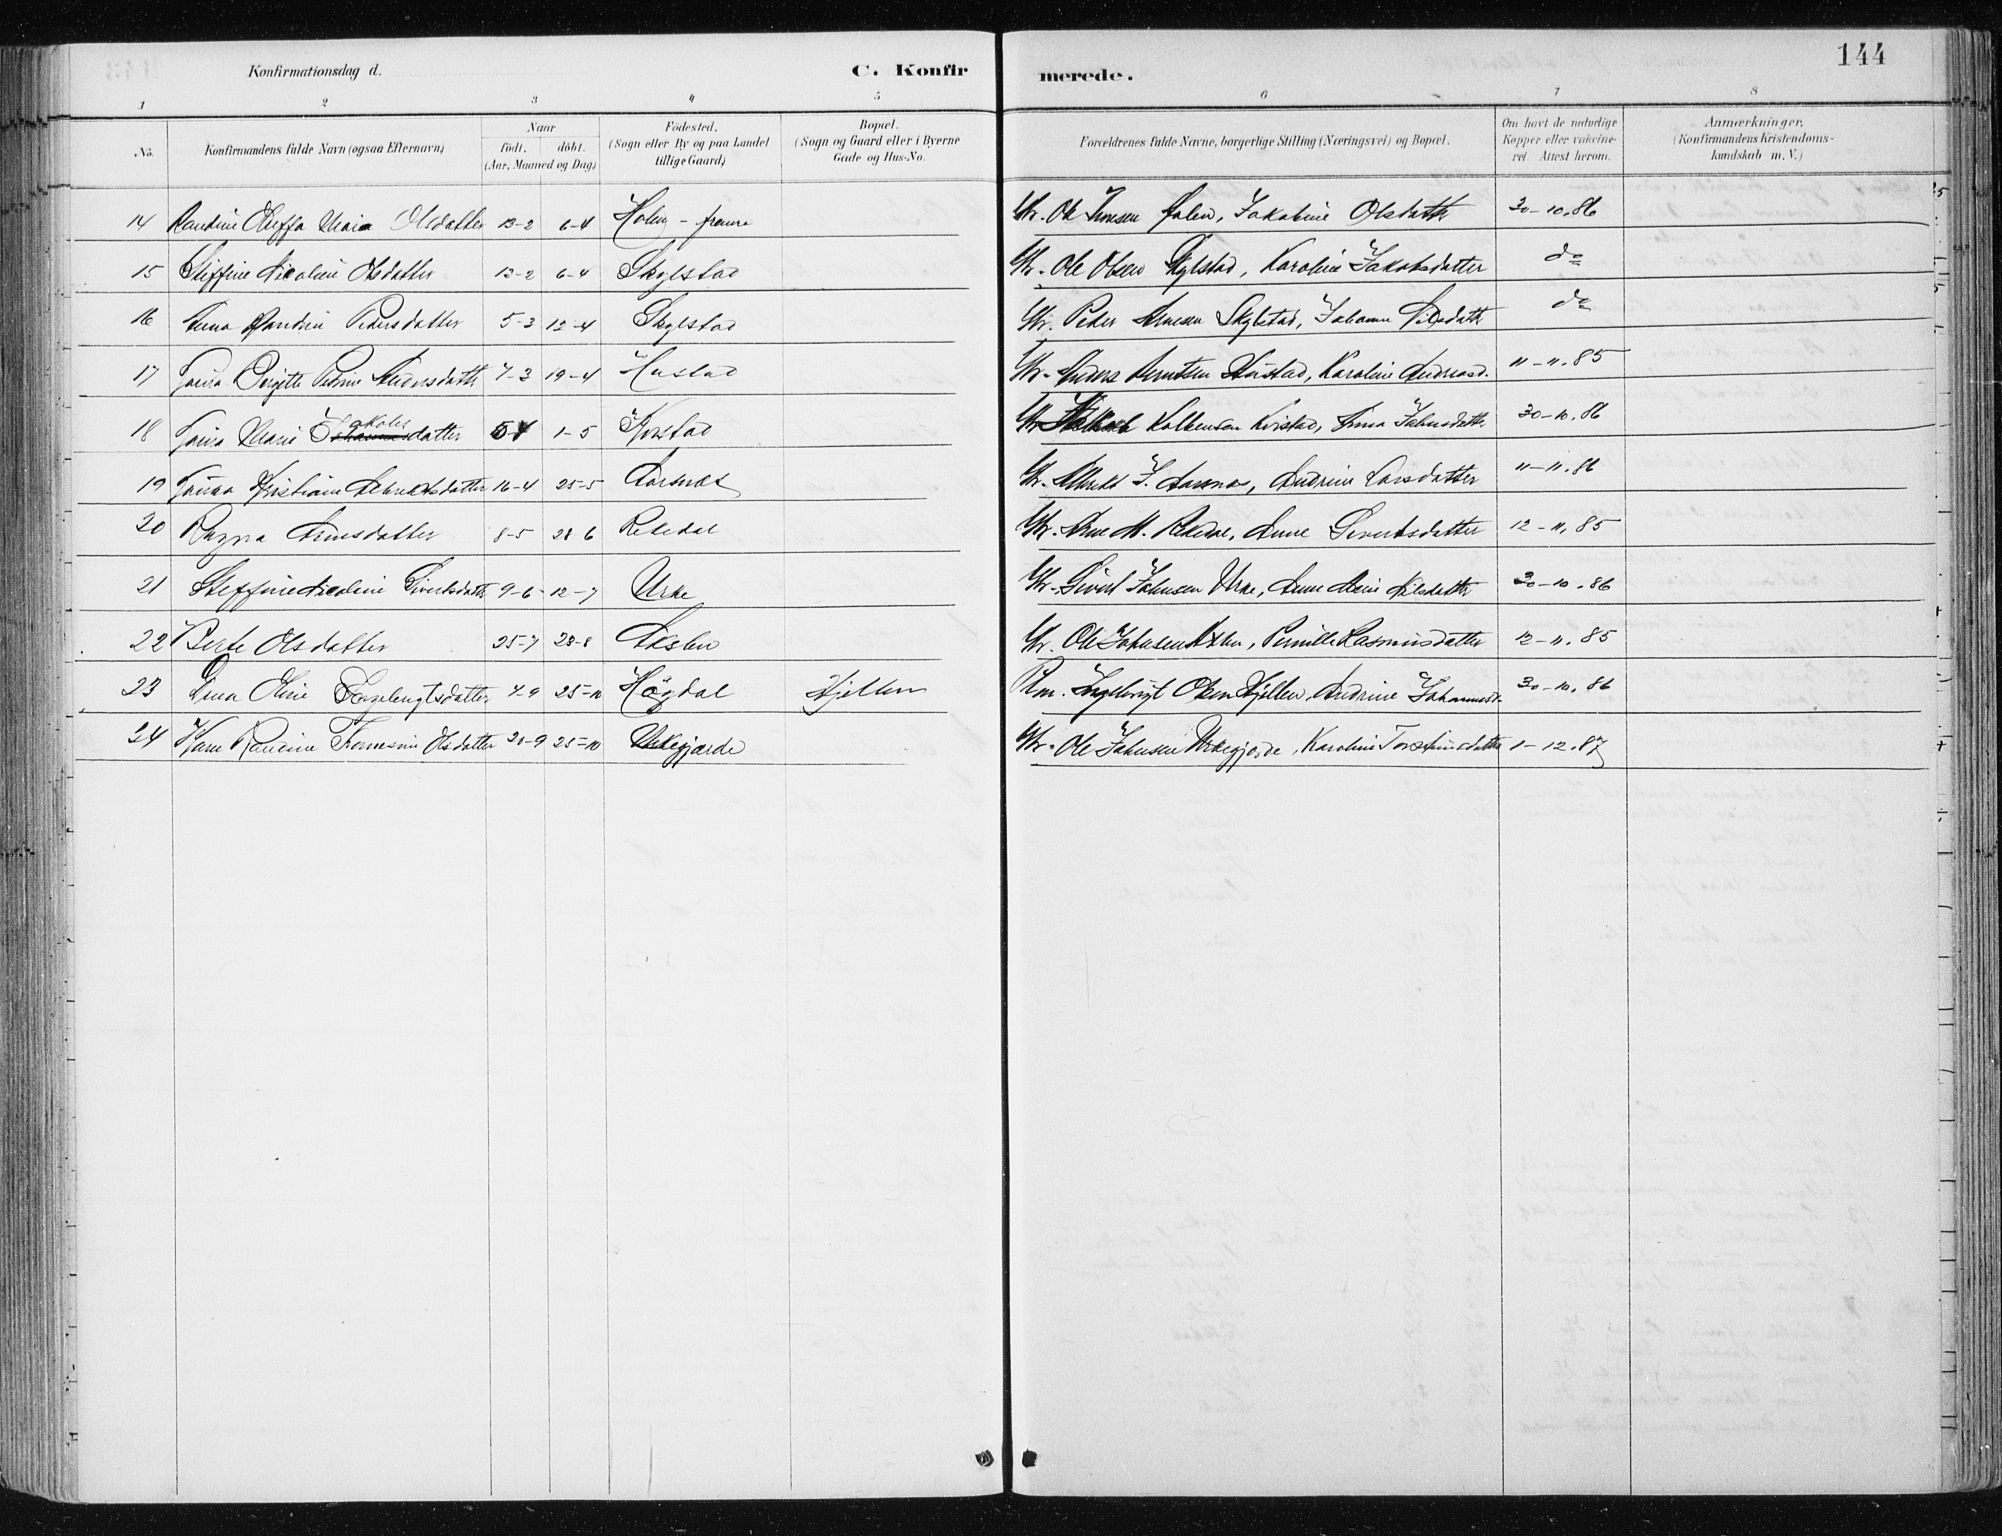 144
Konfirmationsdag d. C. Konfirmerede.
1 2 3 4 5 6 7 8
No. Konfirmandens fulde Navn (ogsaa Efternavn) Naar født. døbt. (Aar, Maaned og Dag) Fødested. (Sogn eller By og paa Landet tillige Gaard) Bopæl. (Sogn og Gaard eller i Byerne Gade og Hus-No. Forældrenes fulde Navne, borgerlige Stilling (Næringsvei) og Bopæl. Om havt de naturlige Kopper eller vakcineret. Attest herom. Anmærkninger. (Konfirmandens Kristendomskundskab m. V.)
14 Randine Steffa Maria Olsdatter 13-2 6-4 Holen Ole Holen, Jakobine Olsdatter 30-10.86
15 Steffine Nicoline Olsdatter 13-2 6-4 Skylstad Ole Olsen Skylstad, Karoline Jakobsdatter do
16 Anna Randine Pedersdatter 5-3 12-4 Skylstad Peder Arnesen Skylstad, Johanne Nilsdatter do
17 Birgitte Pedrine Andersdatter 7-3 19-4 Hustad Anders Arntsen Hustad, Karoline Andreasd. 11-11.85
18 Marie Jakobsdatter 1-5 Kvistad Jakob Kolbensen Kvistad, Anna Johnsdatter 30-10.86
19 Kristiane 16-4 25-5 Aarsnæs J. Aarsnæs, Andrine Larsdatter 11-11.86
20 Ragna Arnesdatter 8-5 28-6 Rekedal Arne M. Rekedal, Anne Sivertsdatter 12-11.85
21 Steffine Nicoline Sivertsdatter 9-6 12-7 Urke Sivert Johnsen Urke, Anne Marie Nilsdatter 30-10.86
22 Berte Olsdatter 25-7 28-8 Axlen Ole Johnsen Axlen, Pernille Rasmusdatter 12-11.85
23 Dina Oline Engelbrigtsdatter 4-9 25-10 Høgdal Hjellen Ingebrigt Olsen Hjellen, Andrine Johannesd. 30-10.86
24 Karen Olsdatter 20-9 25-10 Urkegjærde Ole Johnsen Urkegjerde, Karoline Torsteinsdatter 1-12.87